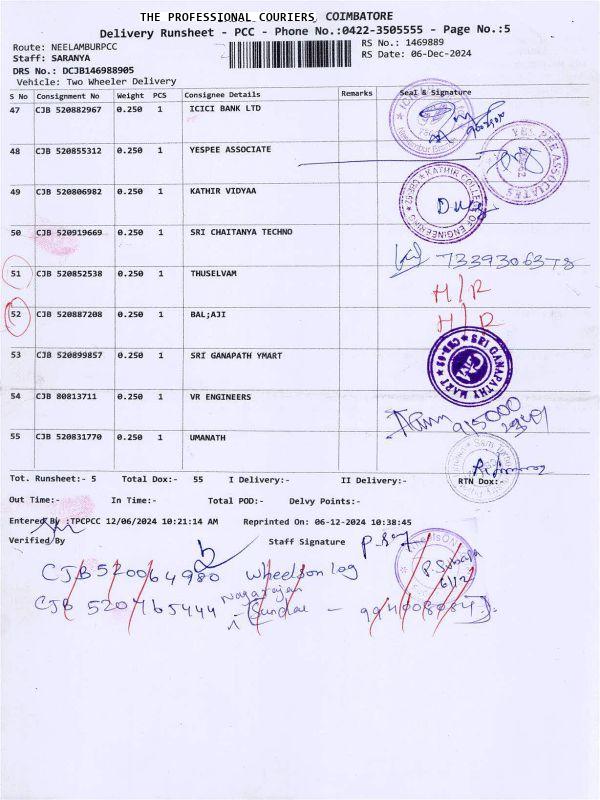 THE PROFESSIONAL COURIERS, COIMBATORE
Delivery Runsheet - PCC - Phone No.:0422-3505555 - Page No.:5
Route: NEELAMBURPCC RS No.: 1469889
Staff: SARANYA RS Date: 06-Dec-2024
DRS No.: DCJB146988905
Vehicle: Two Wheeler Delivery
S No Consignment No Weight PCS Consignee Details Remarks Seal & Signature
47 CJB 520882967 0.250 1 ICICI BANK LTD
48 CJB 520855312 0.250 1 YESPEE ASSOCIATE
YES PEE ASSOCIATES
49 CJB 520806982 0.250 1 KATHIR VIDYAA
KATHIR COLLEGE OF ENGINEERING
50 CJB 520919669 0.250 1 SRI CHAITANYA TECHNO
7339306378
51 CJB 520852538 0.250 1 THUSELVAM
H/R
52 CJB 520887208 0.250 1 BAL;AJI
H/R
53 CJB 520899857 0.250 1 SRI GANAPATH YMART
SRI GANAPATHY MART
54 CJB 80813711 0.250 1 VR ENGINEERS
55 CJB 520831770 0.250 1 UMANATH
Tot. Runsheet:- 5 Total Dox:- 55 I Delivery:- II Delivery:- RTN Dox:-
Out Time:- In Time:- Total POD:- Delvy Points:-
Entered By :TPCPCC 12/06/2024 10:21:14 AM Reprinted On: 06-12-2024 10:38:45
Verified By Staff Signature
CJB 520064980 wheelson log
Nagarajan
CJB 520765444